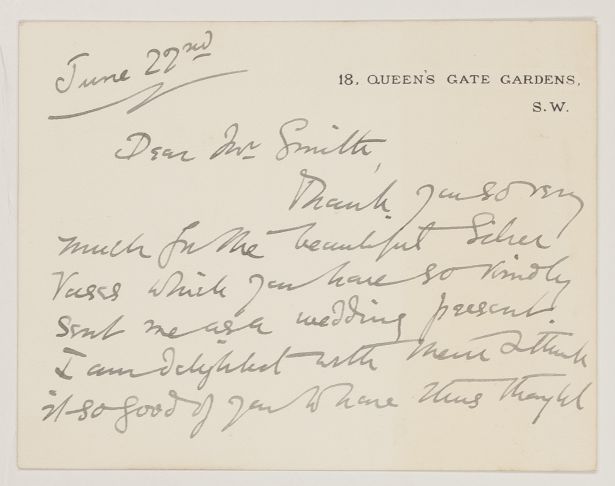 June 22nd
18, QUEEN'S GATE GARDENS,
S.W.
Dear Mr Smith,
Thank you so very
much for the beautiful Silver
Vases which you have so kindly
sent me as a wedding present.
I am delighted with them & think
it so good of you to have thus thought